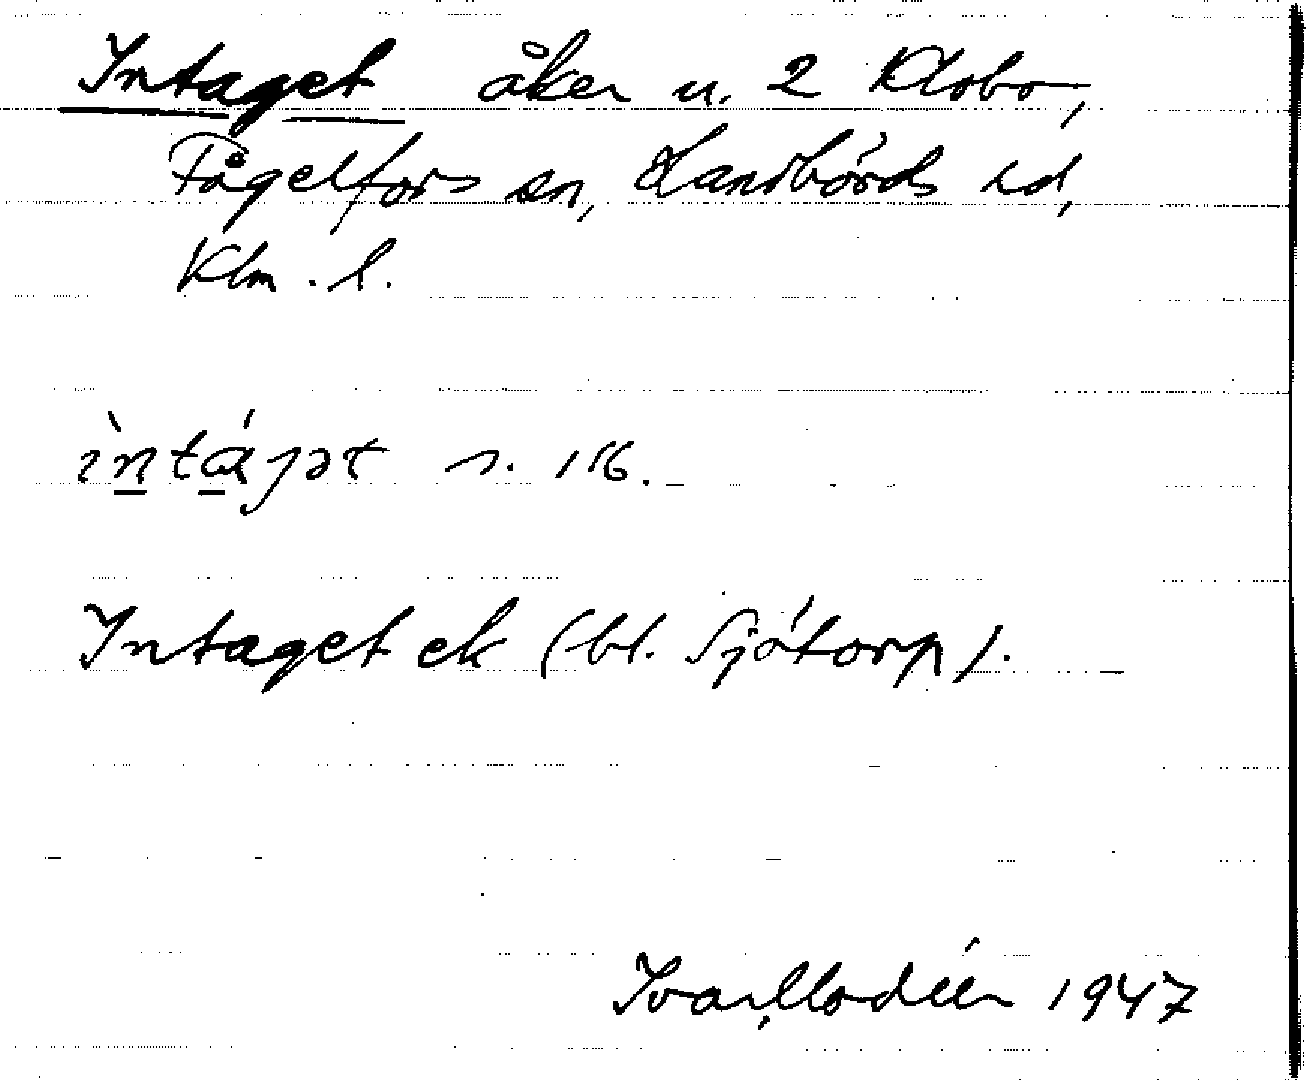 Intaget åker u. 2 Klobo,
Fågelfors sn, Handbörds hd,
Klm. l.
ìntáɡət s. 116.
Intaget ek (bl. Sjötorp).
Ivar Modéer 1947